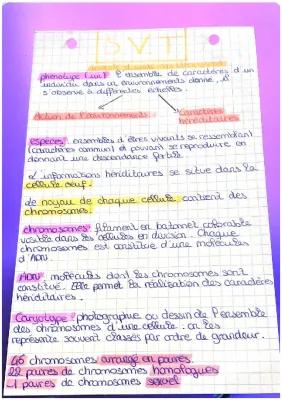 SVT
phénotype (un) l'ensemble de caractères d'un
individu dans un environnements donné, il
s'observe à différentes échelles.
Action de l'environnements
Caractères
héréditaires
espèces: ensembles d'êtres vivants se ressemblant
(caractères commun) et pouvant se reproduire en
donnant une descendance fertile
informations héréditaires se situe dans la
cellule oeuf.
de noyau de chaque cellule contient des
chromosomes.
chromosomes: filament en batonnet colorable
visible dans les cellules en division. Chaque
chromosomes est constitué d'une molécules
d'ADN.
ADN: molécules dont les chromosomes sont
constitué. Elle permet la réalisation des caractères
héréditaires.
Caryotype: photographie ou dessin de l'ensemble
des chromosomes d'une cellule. on les
représente souvent classés par ordre de grandeur.
46 chromosomes arrangé en paires.
22 paires de chromosomes homologues
1 paires de chromosomes sexuel